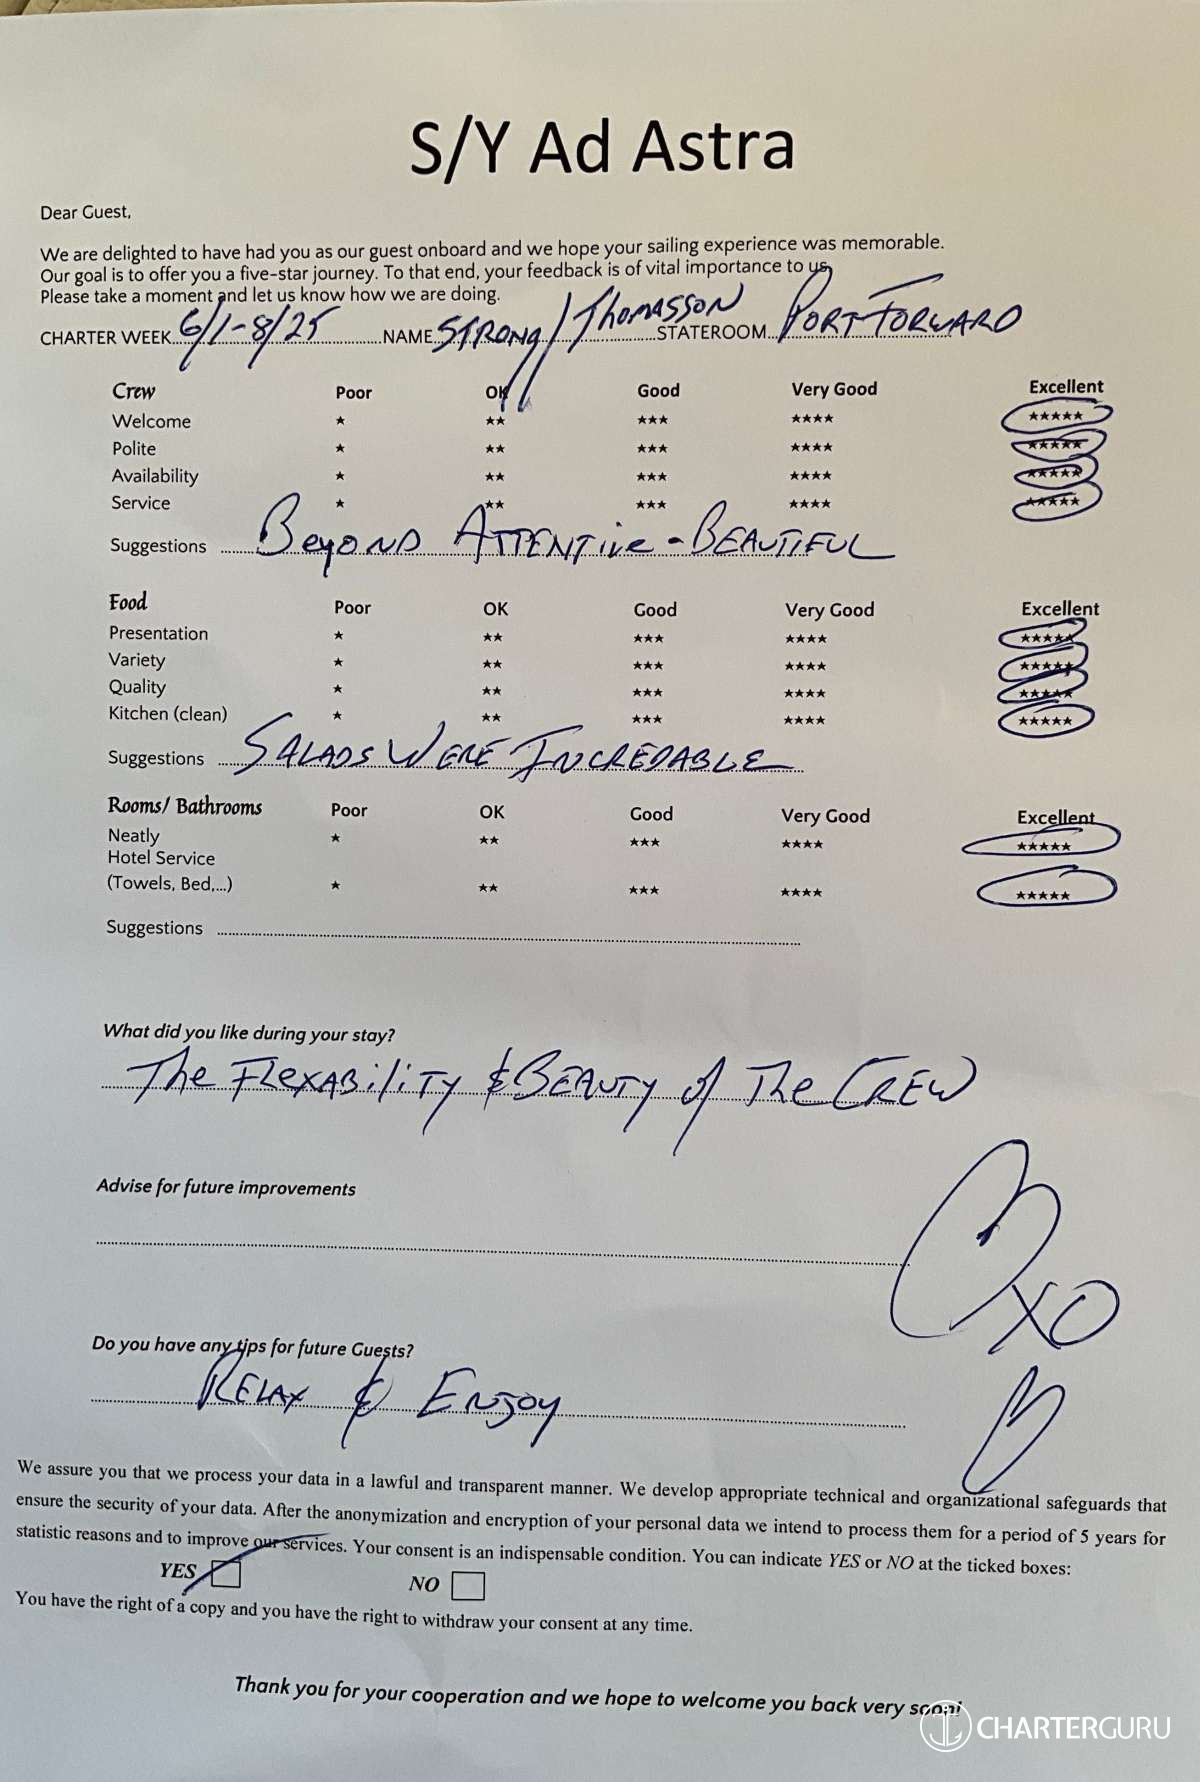 S/Y Ad Astra
Dear Guest,
We are delighted to have had you as our guest onboard and we hope your sailing experience was memorable.
Our goal is to offer you a five-star journey. To that end, your feedback is of vital importance to us.
Please take a moment and let us know how we are doing.
CHARTER WEEK 6/1-8/25 NAME STRONG/THOMASSON STATEROOM PORT FORWARD
Crew Poor OK Good Very Good Excellent
Welcome ★ ★★ ★★★ ★★★★ ★★★★★
Polite ★ ★★ ★★★ ★★★★ ★★★★★
Availability ★ ★★ ★★★ ★★★★ ★★★★★
Service ★ ★★ ★★★ ★★★★ ★★★★★
Suggestions BEYOND ATTENTIVE - BEAUTIFUL
Food Poor OK Good Very Good Excellent
Presentation ★ ★★ ★★★ ★★★★ ★★★★★
Variety ★ ★★ ★★★ ★★★★ ★★★★★
Quality ★ ★★ ★★★ ★★★★ ★★★★★
Kitchen (clean) ★ ★★ ★★★ ★★★★ ★★★★★
Suggestions SALADS WERE INCREDABLE
Rooms/ Bathrooms Poor OK Good Very Good Excellent
Neatly ★ ★★ ★★★ ★★★★ ★★★★★
Hotel Service
(Towels, Bed,...) ★ ★★ ★★★ ★★★★ ★★★★★
Suggestions
What did you like during your stay?
THE FLEXABILITY & BEAUTY OF THE CREW
Advise for future improvements
XO
Do you have any tips for future Guests?
RELAX & ENJOY
We assure you that we process your data in a lawful and transparent manner. We develop appropriate technical and organizational safeguards that
ensure the security of your data. After the anonymization and encryption of your personal data we intend to process them for a period of 5 years for
statistic reasons and to improve our services. Your consent is an indispensable condition. You can indicate YES or NO at the ticked boxes:
YES NO
You have the right of a copy and you have the right to withdraw your consent at any time.
Thank you for your cooperation and we hope to welcome you back very soon!
CHARTERGURU